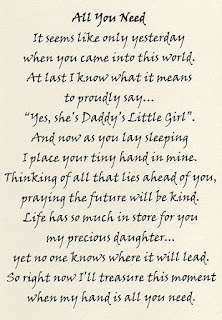 All You Need
It seems like only yesterday
when you came into this world.
At last I know what it means
to proudly say...
"Yes, she's Daddy's Little Girl".
And now as you lay sleeping
I place your tiny hand in mine.
Thinking of all that lies ahead of you,
praying the future will be kind.
Life has so much in store for you
my precious daughter...
yet no one knows where it will lead.
So right now I'll treasure this moment
when my hand is all you need.